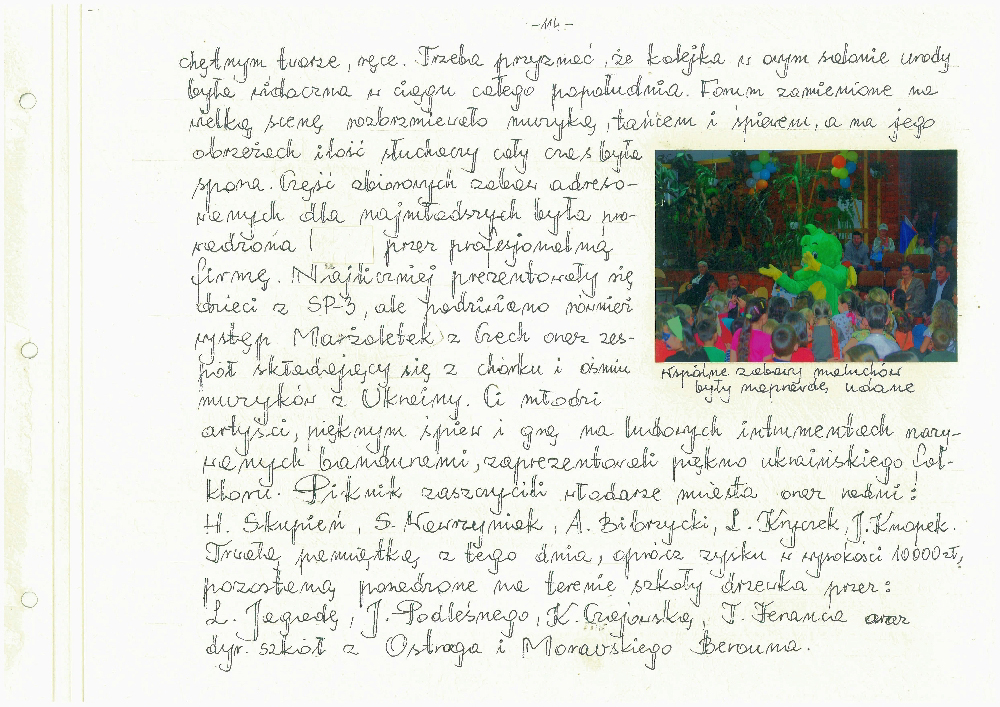 -114-
chętnym twarze, ręce. Trzeba przyznać, że kolejka w owym salonie urody
była widoczna w ciągu całego popołudnia. Forum zamienione na
wielką scenę rozbrzmiewało muzyką, tańcem i śpiewem, a na jego
obrzeżach ilość słuchaczy cały czas była
spora. Część zbiorowych zabaw adreso-
wanych dla najmłodszych była pro-
wadzona przez profesjonalną
firmę. Najliczniej prezentowały się
dzieci z SP-3, ale podziwiano również
występ Marżoletek z Czech oraz zes-
pół składający się z chórku i ośmiu
muzyków z Ukrainy. Ci młodzi
artyści, pięknym śpiew i grą na ludowych intrumentach nazy-
wanych bandurami, zaprezentowali piękno ukraińskiego fol-
kloru. Piknik zaszczycili włodarze miasta oraz radni:
H. Skupień, S. Nawrzyniak, A. Bibrzycki, L. Kryczek, J. Knopek.
Trwałą pamiątką z tego dnia, oprócz zysku w wysokości 10 000 zł,
pozostaną posadzone na terenie szkoły drzewka przez:
L. Jagodę, J. Podleśnego, K. Czajowską, T. Ferancza oraz
dyr. szkół z Ostroga i Moravskiego Berouna.
wspólne zabawy maluchów
były naprawdę udane